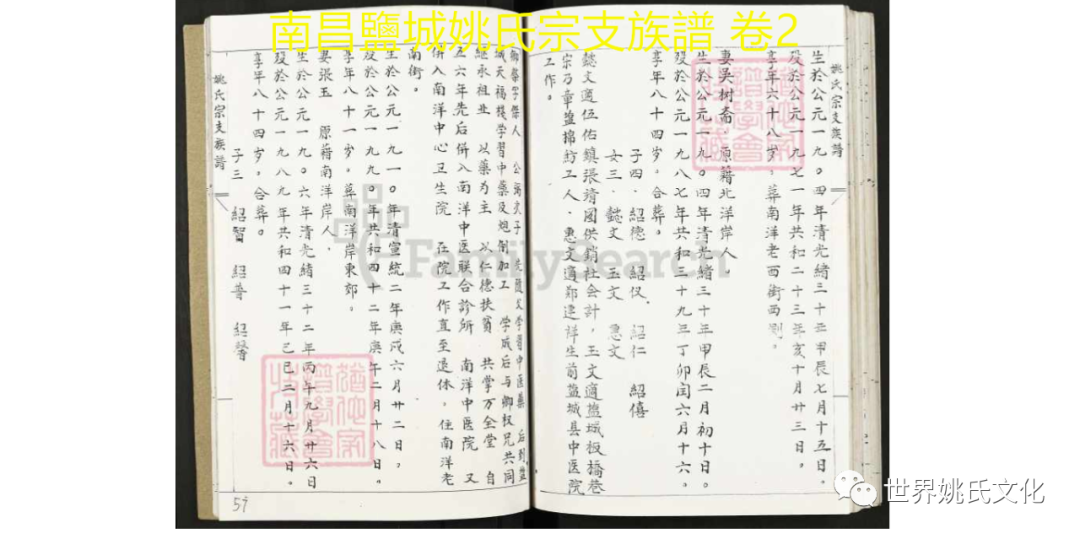 南昌鹽城姚氏宗支族譜 卷2
姚氏宗支族譜
生於公元一九〇四年清光緒三十年甲辰七月十五日。
歿於公元一九七一年共和二十三年亥十月廿三日。
享年六十八岁，葬南洋老西街西側，
妻吴树斋，原籍北洋岸人，
生於公元一九〇四年清光緒三十年甲辰二月初十日。
歿於公元一九八七年共和三十九年丁卯闰六月十六。
享年八十四岁，合葬。
子四，紹德 紹仪 紹仁 紹僖
女三，懿文 玉文 惠文
懿文適伍佑鎮張靖國供销社会計，玉文適盐城板橋巷
宗乃章盐棉紡工人，惠文適郑建祥生前盐城县中医院
工作。
字傑人 公 次子 学習中医藥 后到盐
城天福棧学習中藥及炮制加工 学成后与卿权兄共同
继承祖业 以藥为主 以仁德扶貧 共掌万全堂 自
五六年先后併入南洋中医联合診所 南洋中医院 又
併入南洋中心卫生院 在院工作直至退休，住南洋老
南街。
生於公元一九一〇年清宣統二年庚戌六月廿二日，
歿於公元一九九〇年共和四十二年庚午二月十八日。
享年八十一岁，葬南洋岸東郊。
妻張玉 原藉南洋岸人，
生於公元一九〇六年清光緒三十二年丙午九月廿六日
歿於公元一九八九年共和四十一年己巳二月十六日。
享年八十四岁，合葬。
子三 紹智 紹普 紹
姚氏宗支族譜
57
FamilySearch
世界姚氏文化